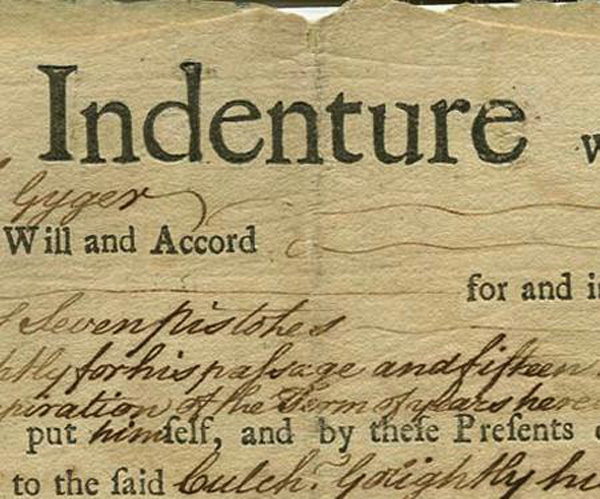 Indenture
Gyger
Will and Accord
for and
Seven pistoles
for his paſsage and fifteen
piration of the Term of years here
put himſelf, and by theſe Preſents
to the ſaid Culch.ᵗ Golightly